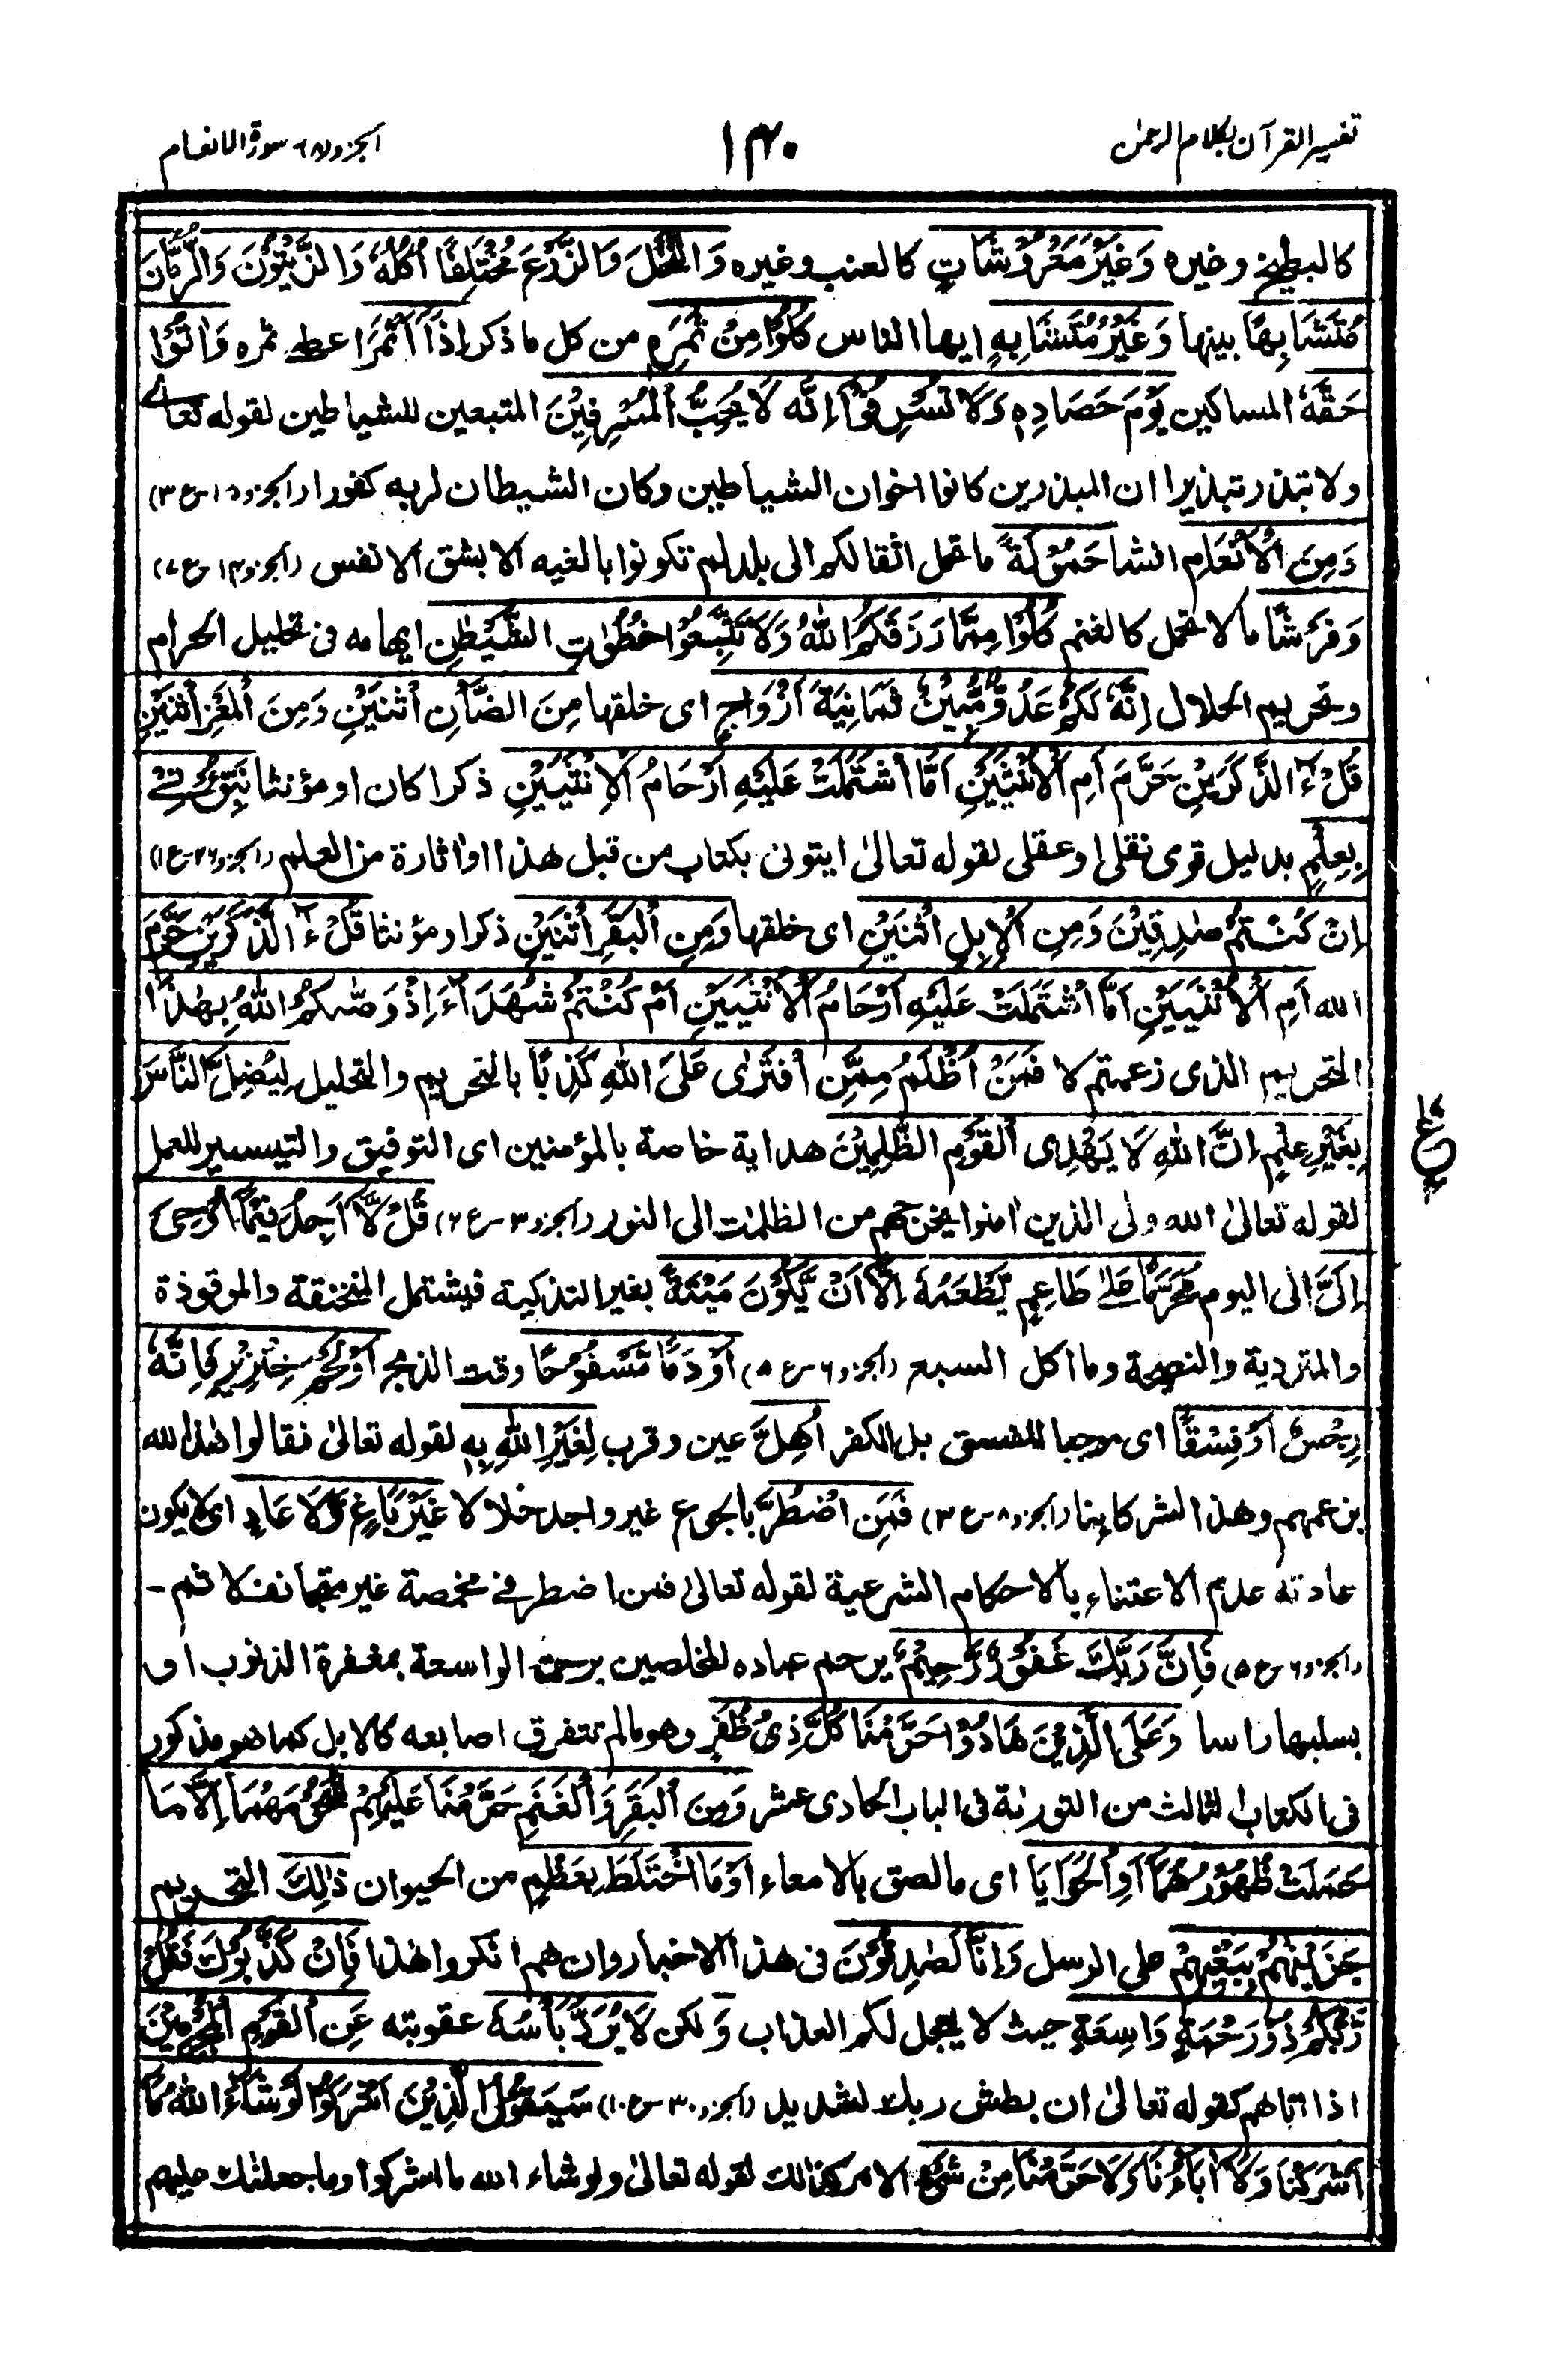 تفسير القرآن بكلام الرحمٰن
١٤٠
الجزو (٨)- سورة الانعام
كالبطيخ وغيره وَغَيْرَ مَعْرُوْشَاتٍ كالعنب وغيره وَالنَّخْلَ وَالزَّرْعَ مُخْتَلِفًا اُكُلُهٗ وَالزَّيْتُوْنَ وَالرُّمَّانَ
مُتَشَابِهًا بينها وَغَيْرَ مُتَشَابِهٍ ايها الناس كُلُوْا مِنْ ثَمَرِهٖ من كل ما ذكر اِذَآ اَثْمَرَ اعطى ثمره وَاٰتُوْا
حَقَّهٗ المساكين يَوْمَ حَصَادِهٖ وَلَا تُسْرِفُوْٓا اِنَّهٗ لَا يُحِبُّ الْمُسْرِفِيْنَ المتبعين للشياطين لقوله تعالے
ولا تبذر تبذيرا ان المبذرين كانوا اخوان الشياطين وكان الشيطان لربه كفورا (الجزو ١٥-ع ٣)
وَمِنَ الْاَنْعَامِ انشا حَمُوْلَةً ما تحمل اثقالكم الى بلد لم تكونوا بالغيه الا بشق الانفس (الجزو ١٤-ع ٧)
وَفَرْشًا ما لا تحمل كالغنم كُلُوْا مِمَّا رَزَقَكُمُ اللّٰهُ وَلَا تَتَّبِعُوْا خُطُوٰتِ الشَّيْطٰنِ ايهامه فى تحليل الحرام
وتحريم الحلال اِنَّهٗ لَكُمْ عَدُوٌّ مُّبِيْنٌ ثَمَانِيَةَ اَزْوَاجٍ اى خلقها مِنَ الضَّاْنِ اثْنَيْنِ وَمِنَ الْمَعْزِ اثْنَيْنِ
قُلْ ءٰۤالذَّكَرَيْنِ حَرَّمَ اَمِ الْاُنْثَيَيْنِ اَمَّا اشْتَمَلَتْ عَلَيْهِ اَرْحَامُ الْاُنْثَيَيْنِ ذكرا كان او مؤنثا نَبِّئُوْنِيْ
بِعِلْمٍ بدليل قوى نقلى او عقلى لقوله تعالىٰ ايتونى بكتاب من قبل هذا او اثارة من العلم (الجزو ٢٦-ع ١)
اِنْ كُنْتُمْ صٰدِقِيْنَ وَمِنَ الْاِبِلِ اثْنَيْنِ اى خلقها وَمِنَ الْبَقَرِ اثْنَيْنِ ذكرا ومؤنثا قُلْ ءٰۤالذَّكَرَيْنِ حَرَّمَ
الله اَمِ الْاُنْثَيَيْنِ اَمَّا اشْتَمَلَتْ عَلَيْهِ اَرْحَامُ الْاُنْثَيَيْنِ اَمْ كُنْتُمْ شُهَدَآءَ اِذْ وَصّٰىكُمُ اللّٰهُ بِهٰذَا
التحريم الذى زعمتم لا فَمَنْ اَظْلَمُ مِمَّنِ افْتَرٰى عَلَى اللّٰهِ كَذِبًا بالتحريم والتحليل لِيُضِلَّ النَّاسَ
بِغَيْرِ عِلْمٍ اِنَّ اللّٰهَ لَا يَهْدِى الْقَوْمَ الظّٰلِمِيْنَ هداية خاصة بالمؤمنين اى التوفيق والتيسير للعمل
لقوله تعالىٰ الله ولى الذين اٰمنوا يخرجهم من الظلمٰت الى النور (الجزو ٣-ع ٢) قُلْ لَّآ اَجِدُ فِيْمَآ اُوْحِىَ
اِلَىَّ الى اليوم مُحَرَّمًا عَلٰى طَاعِمٍ يَّطْعَمُهٗ اِلَّآ اَنْ يَّكُوْنَ مَيْتَةً بغير التذكية فيشتمل المنخنقة والموقوذة
والمتردية والنطيحة وما اكل السبع (الجزو ٦-ع ٥) اَوْ دَمًا مَّسْفُوْحًا وقت الذبح اَوْ لَحْمَ خِنْزِيْرٍ فَاِنَّهٗ
رِجْسٌ اَوْ فِسْقًا اى موجبا للفسق بل الكفر اُهِلَّ عين وقرب لِغَيْرِ اللّٰهِ بِهٖ لقوله تعالىٰ فقالوا هٰذا لله
بزعمهم وهذا لشركائنا (الجزو ٨-ع ٣) فَمَنِ اضْطُرَّ بالجوع غير واجد حلالا غَيْرَ بَاغٍ وَّلَا عَادٍ اى لا يكون
عادته عدم الاعتناء بالاحكام الشرعية لقوله تعالىٰ فمن اضطر فى مخمصة غير متجانف لاثم -
(الجزو ٦-ع ٥) فَاِنَّ رَبَّكَ غَفُوْرٌ رَّحِيْمٌ يرحم عباده المخلصين برحمته الواسعة بمغفرة الذنوب او
بسلبها راسا وَعَلَى الَّذِيْنَ هَادُوْا حَرَّمْنَا كُلَّ ذِىْ ظُفُرٍ وهو ما لم تتفرق اصابعه كالابل كما هو مذكور
فى الكتاب الثالث من التورٰىة فى الباب الحادى عشر وَمِنَ الْبَقَرِ وَالْغَنَمِ حَرَّمْنَا عَلَيْهِمْ شُحُوْمَهُمَآ اِلَّا مَا
حَمَلَتْ ظُهُوْرُهُمَآ اَوِ الْحَوَايَآ اى ما لصق بالامعاء اَوْ مَا اخْتَلَطَ بِعَظْمٍ من الحيوان ذٰلِكَ التحريم
جَزَيْنٰهُمْ بِبَغْيِهِمْ على الرسل وَاِنَّا لَصٰدِقُوْنَ فى هذا الاخبار وان هم انكروا هٰذا فَاِنْ كَذَّبُوْكَ فَقُلْ
رَّبُّكُمْ ذُوْ رَحْمَةٍ وَاسِعَةٍ حيث لا يعجل لكم العذاب وَ لكن لَا يُرَدُّ بَاْسُهٗ عقوبته عَنِ الْقَوْمِ الْمُجْرِمِيْنَ
اذا اتاهم كقوله تعالىٰ ان بطش ربك لشديد (الجزو ٣٠-ع ١٠) سَيَقُوْلُ الَّذِيْنَ اَشْرَكُوْا لَوْ شَآءَ اللّٰهُ مَآ
اَشْرَكْنَا وَلَآ اٰبَآؤُنَا وَلَا حَرَّمْنَا مِنْ شَىْءٍ الامر كذالك لقوله تعالىٰ ولو شاء الله ما اشركوا وما جعلنٰك عليهم